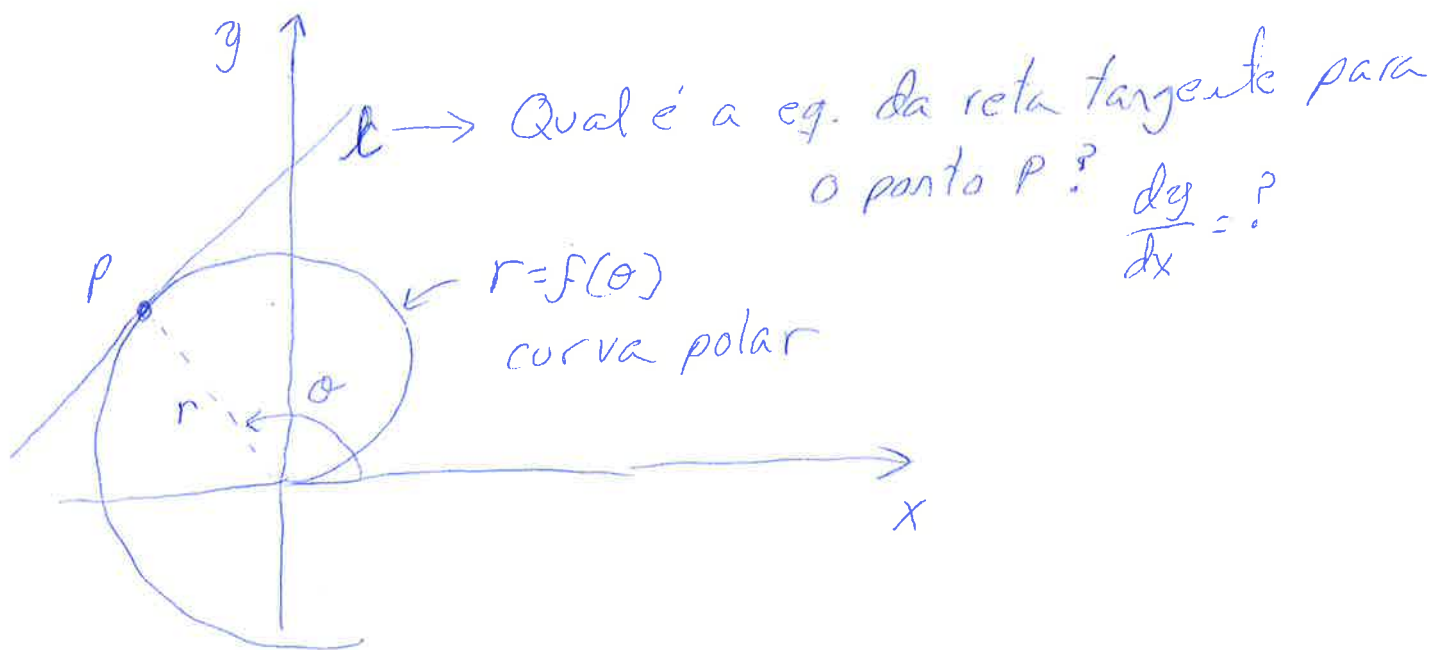 y
l → Qual é a eq. da reta tangente para
o ponto P? dy/dx = ?
P
r = f(θ)
curva polar
r
θ
x